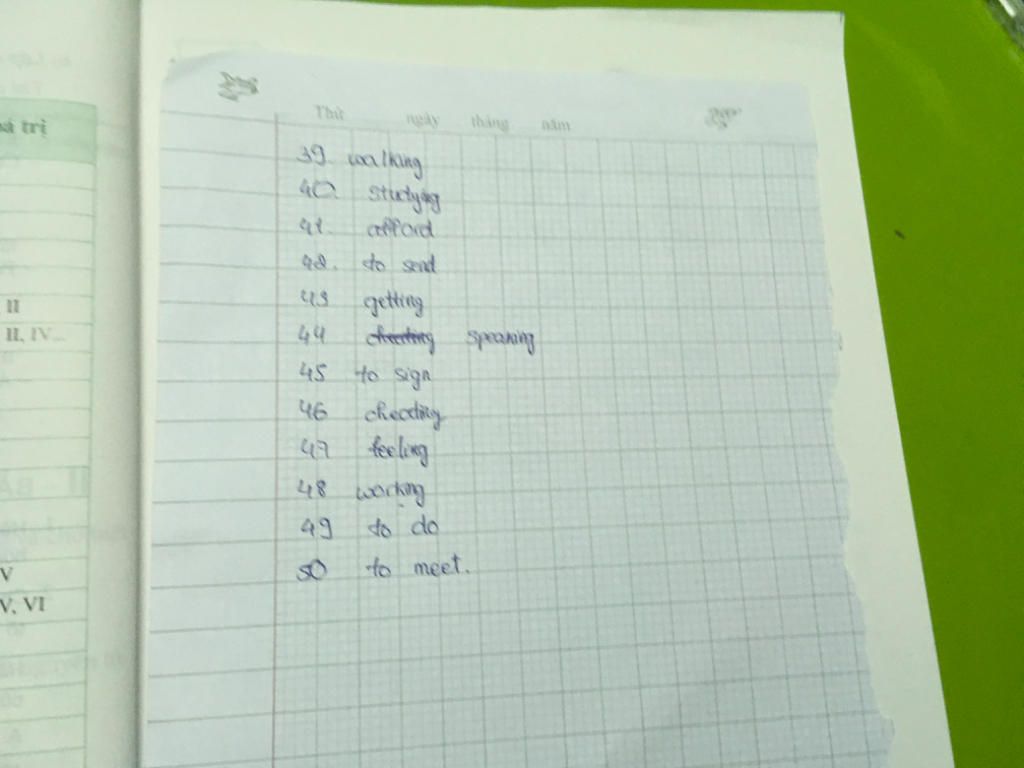 á trị
II
II, IV...
V
V, VI
Thứ ngày tháng năm
39. walking
40. studying
41. afford
42. to send
43 getting
44 cheating speaking
45 to sign
46 cheating
47 feeling
48 working
49 to do
50 to meet.